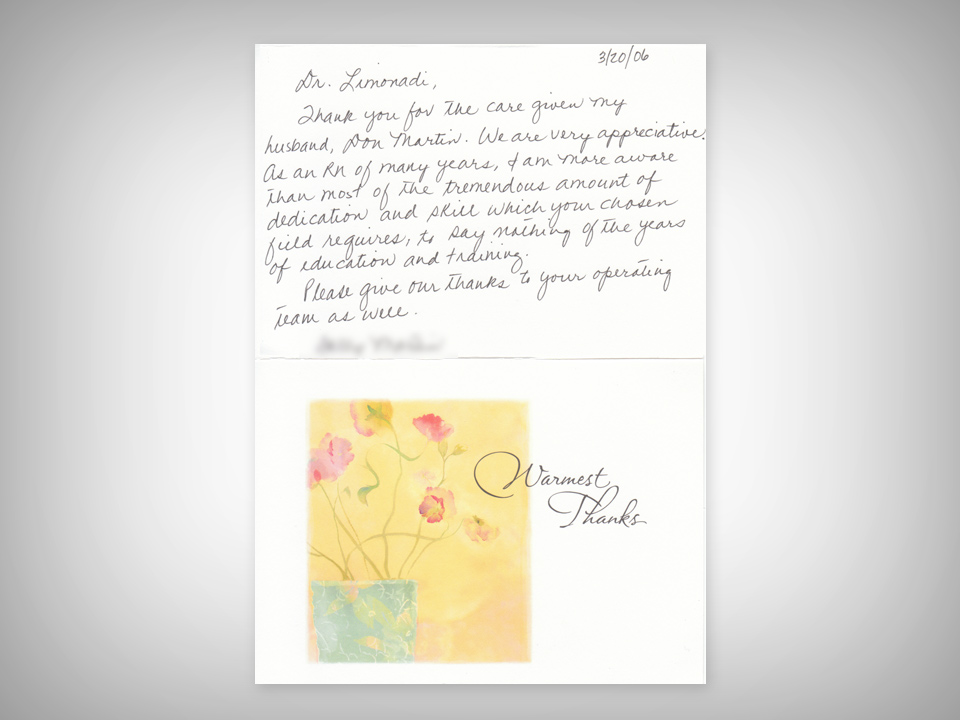 3/20/06
Dr. Limonadi,
Thank you for the care given my
husband, Don Martin. We are very appreciative.
As an RN of many years, I am more aware
than most of the tremendous amount of
dedication and skill which your chosen
field requires, to say nothing of the years
of education and training.
Please give our thanks to your operating
team as well.
Warmest
Thanks